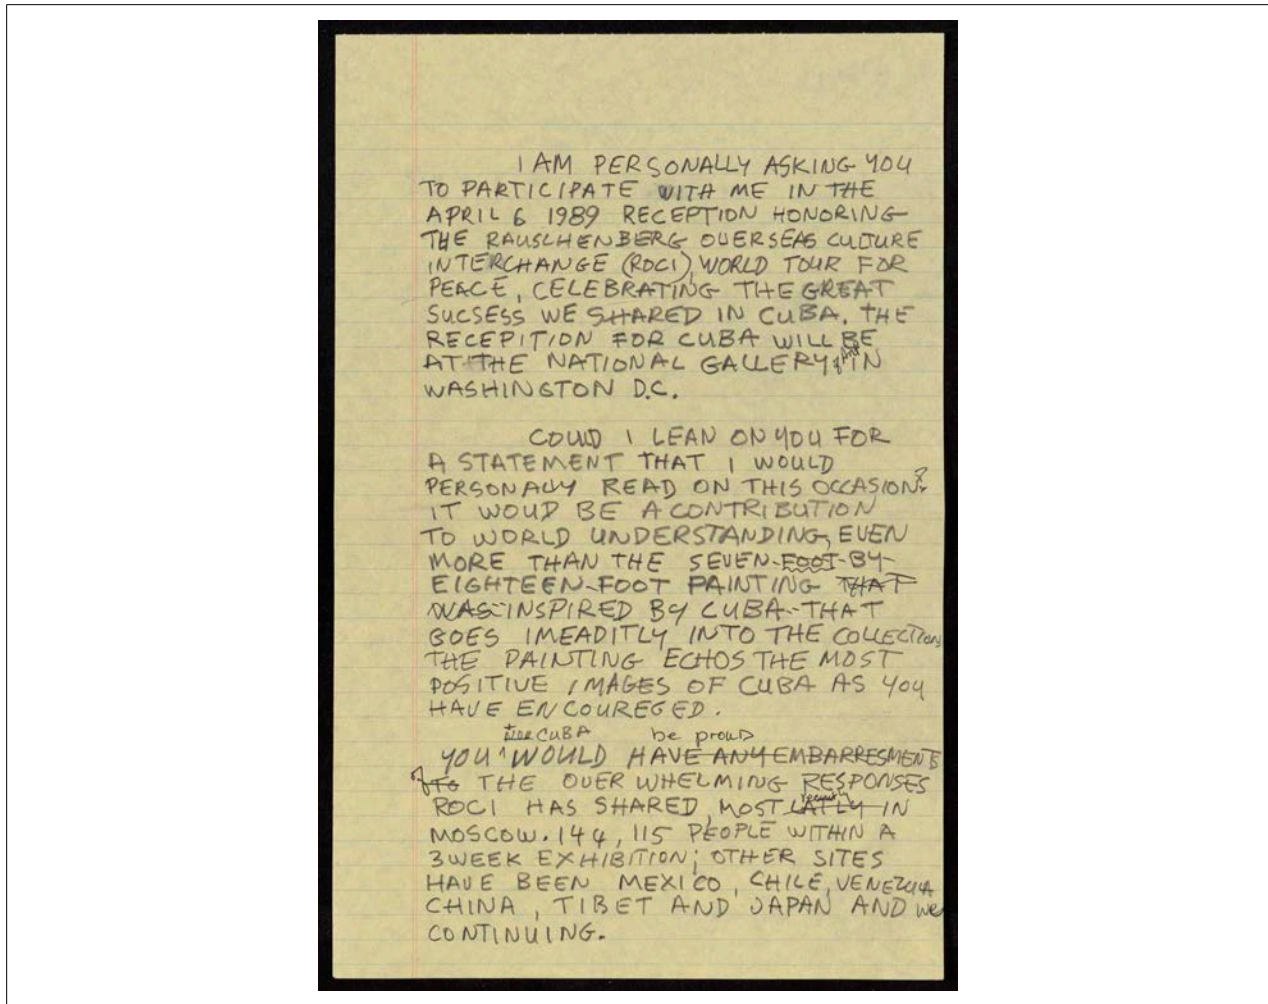 I AM PERSONALLY ASKING YOU
TO PARTICIPATE WITH ME IN THE
APRIL 6 1989 RECEPTION HONORING
THE RAUSCHENBERG OVERSEAS CULTURE
INTERCHANGE (ROCI), WORLD TOUR FOR
PEACE, CELEBRATING THE GREAT
SUCSESS WE SHARED IN CUBA. THE
RECEPITION FOR CUBA WILL BE
AT THE NATIONAL GALLERY of Art IN
WASHINGTON D.C.
COULD I LEAN ON YOU FOR
A STATEMENT THAT I WOULD
PERSONALLY READ ON THIS OCCASION?
IT WOULD BE A CONTRIBUTION
TO WORLD UNDERSTANDING, EVEN
MORE THAN THE SEVEN-FOOT-BY-
EIGHTEEN-FOOT PAINTING THAT
WAS-INSPIRED BY CUBA-THAT
GOES IMEADITLY INTO THE COLLECTION
THE PAINTING ECHOS THE MOST
POSITIVE IMAGES OF CUBA AS YOU
HAVE ENCOUREGED.
CUBA be proud
YOU WOULD HAVE ANY EMBARRESMENTS
TO THE OVER WHELMING RESPONSES
recently
ROCI HAS SHARED, MOST LATLY IN
MOSCOW. 144,115 PEOPLE WITHIN A
3 WEEK EXHIBITION; OTHER SITES
HAVE BEEN MEXICO, CHILE, VENEZULA
CHINA, TIBET AND JAPAN AND we
CONTINUING.